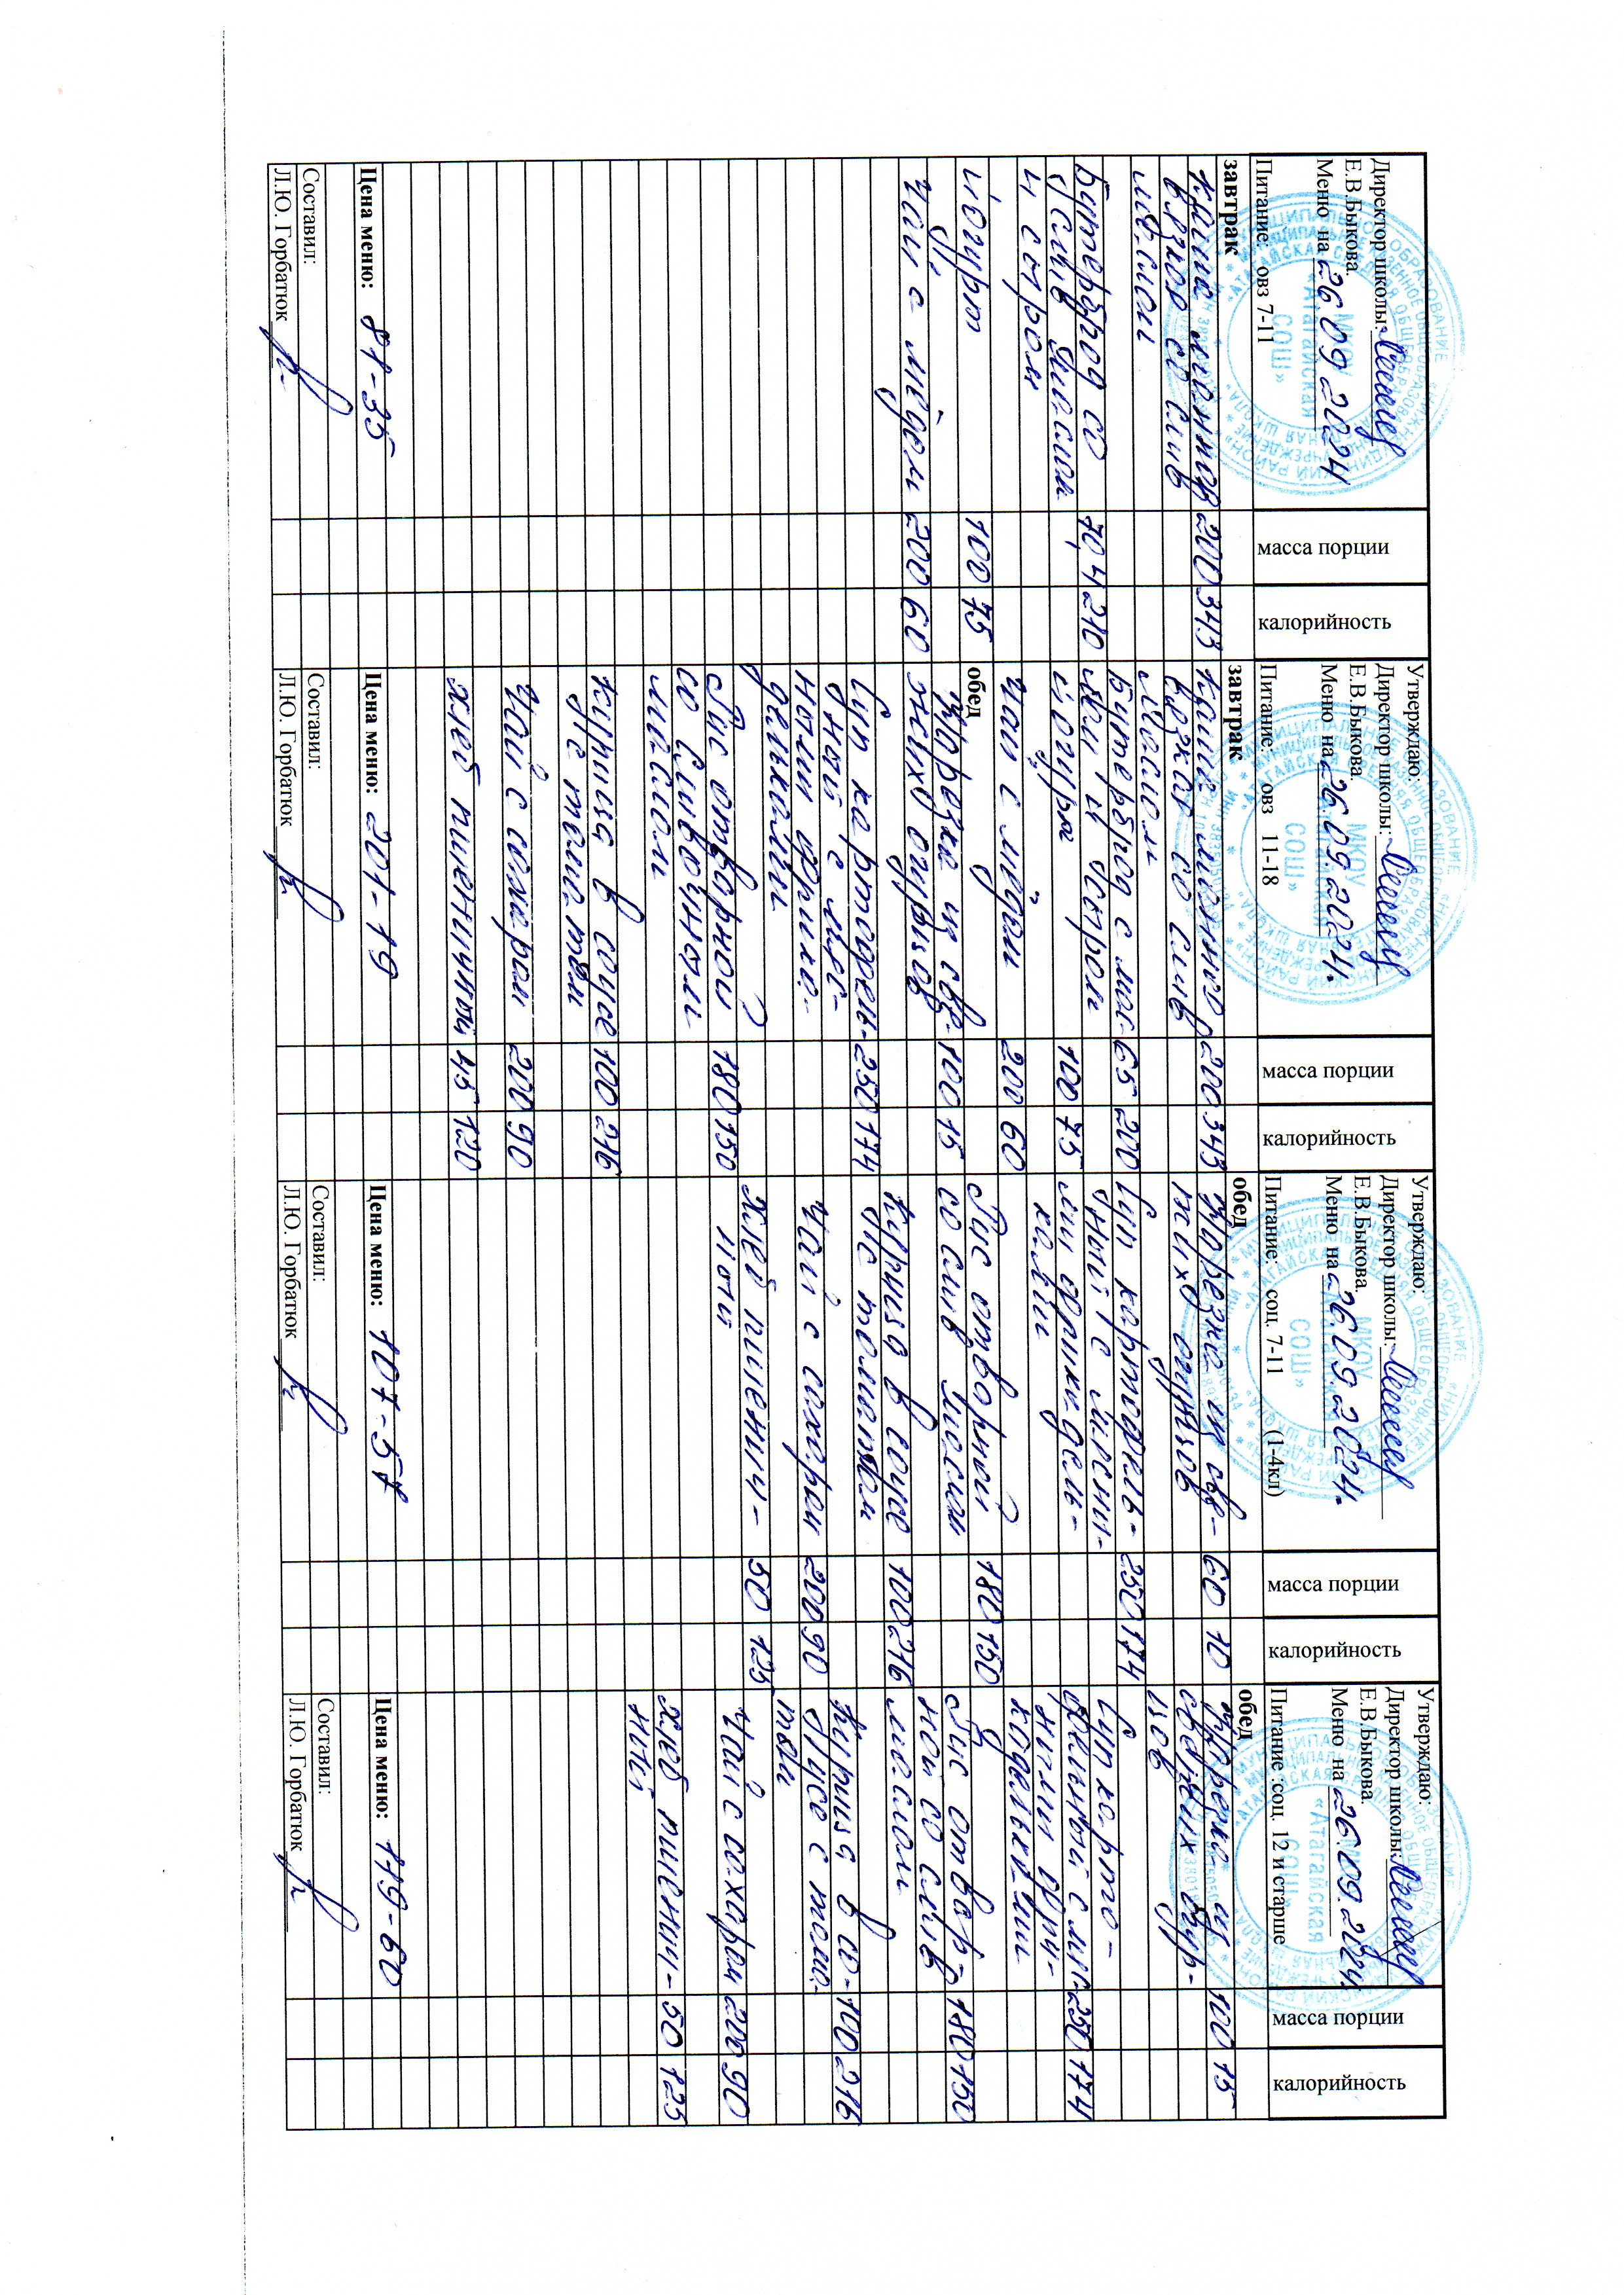 Директор школы:
Е.В.Быкова.
Меню на 26 09 2024
Питание: овз 7-11
масса порции
калорийность
завтрак
Каша манная 200 343
вязкая со слив
маслом
Бутерброд со 70,4 210
слив маслом
и сыром
йогурт 100 75
Чай с мёдом 200 60
Цена меню: 81-35
Составил:
Л.Ю. Горбатюк
Утверждаю:
Директор школы:
Е.В.Быкова.
Меню на 26.09.2024.
Питание: овз 11-18
масса порции
калорийность
завтрак
Каша 200 343
вязкая со слив
маслом
Бутерброд с мас- 65 200
лом и сыром
йогурт 100 75
Чай с мёдом 200 60
обед
Нарезка из све- 100 15
жих огурцов
Суп картофель- 250 174
ный с мяс-
ными фрика-
дельками
Рис отварной 180 150
со сливочным
маслом
Курица в соусе 100 216
с томатом
Чай с сахаром 200 90
хлеб пшеничный 45 120
Цена меню: 201-19
Составил:
Л.Ю. Горбатюк
Утверждаю:
Директор школы:
Е.В.Быкова.
Меню на 26.09.2024.
Питание: соц. 7-11 (1-4кл)
масса порции
калорийность
обед
Нарезка из све- 60 10
жих огурцов
Суп картофель- 250 174
ный с мясны-
ми фрикадель-
ками
Рис отварной 180 150
со слив маслом
Курица в соусе 100 216
с томатом
Чай с сахаром 200 90
Хлеб пшенич- 50 125
ный
Цена меню: 107-57
Составил:
Л.Ю. Горбатюк
Утверждаю:
Директор школы:
Е.В.Быкова.
Меню на 26.09.2024
Питание :соц. 12 и старше
масса порции
калорийность
обед
Нарезка из 100 15
свежих огур-
цов
Суп карто-
фельный с мяс- 250 174
ными фри-
кадельками
Рис отвар- 180 150
ной со слив
маслом
Курица в со- 100 216
усе с тома-
том
Чай с сахаром 200 90
хлеб пшенич- 50 125
ный
Цена меню: 119-60
Составил:
Л.Ю. Горбатюк